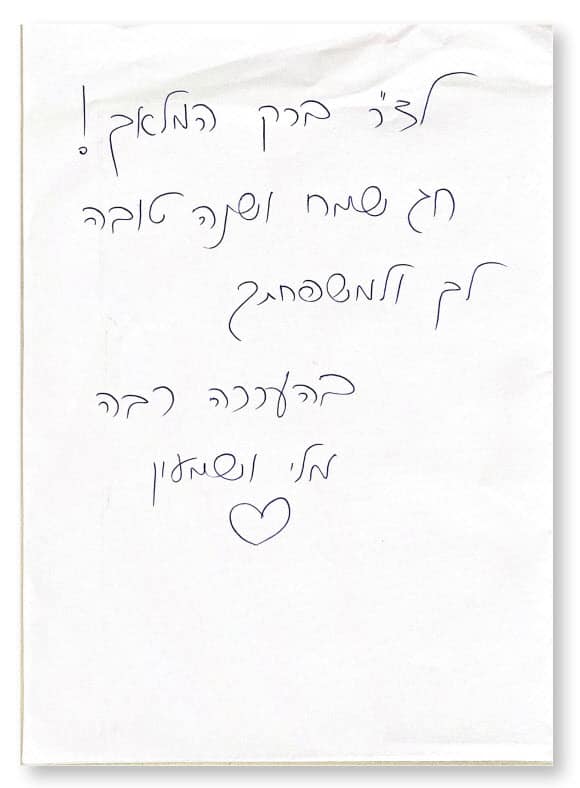 לד"ר ברק המלאך!
חג שמח ושנה טובה
לך ולמשפחתך
בהערכה רבה
מלי ושמעון